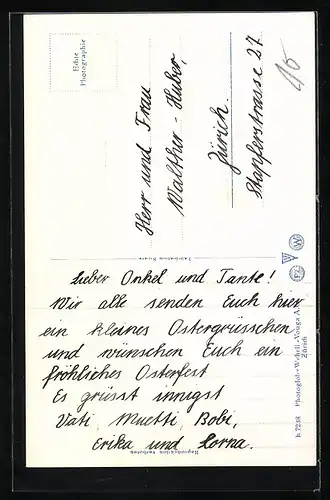 Echte
Photographie
Herr und Frau
Walther - Huber,
Zürich.
Stapferstrasse 27
Lieber Onkel und Tante!
Wir alle senden Euch hier
ein kleines Ostergrüsschen
und wünschen Euch ein
fröhliches Osterfest
Es grüsst innigst
Vati, Muetti, Bobi,
Erika und Lorna.
Reproduktion verboten
h 7238 Photoglob-Wehrli-Vouga A.
Zürich